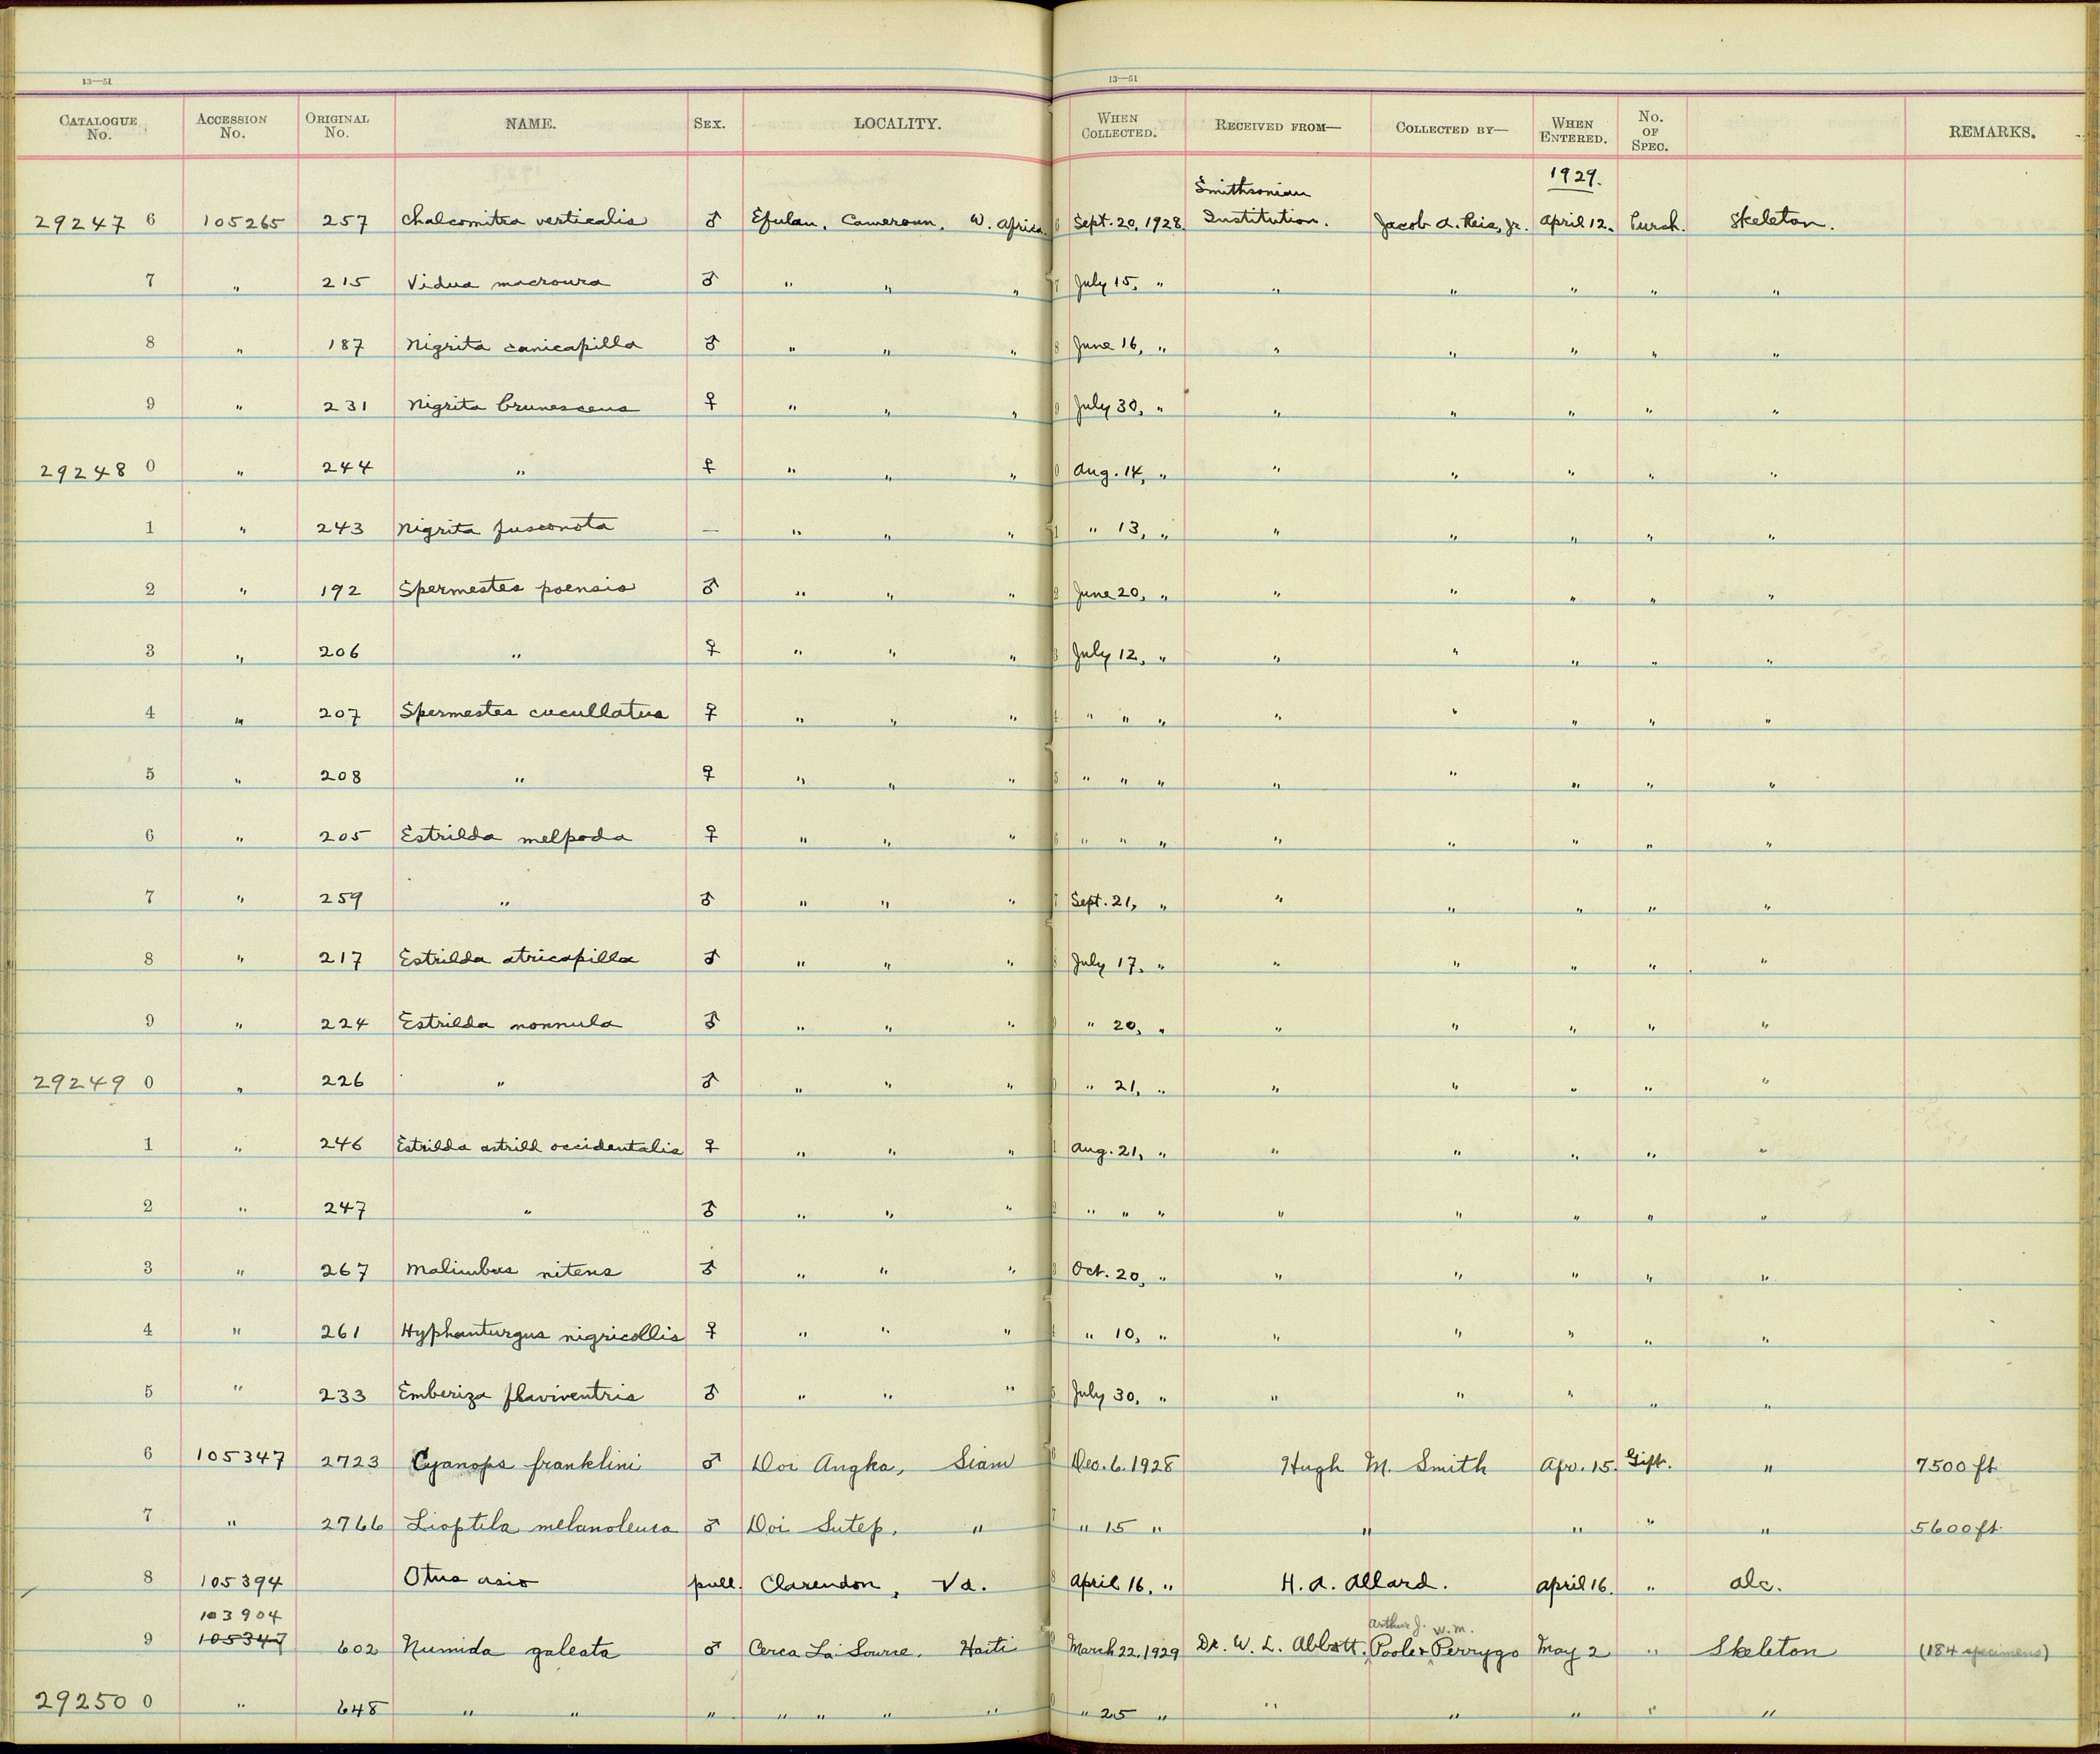 13—51 13—51
CATALOGUE No. ACCESSION No. ORIGINAL No. NAME. SEX. LOCALITY. WHEN COLLECTED. RECEIVED FROM— COLLECTED BY— WHEN ENTERED. No. OF SPEC. REMARKS.
1929.
29247 6 105265 257 Chalcomitra verticalis ♂ Efulan, Cameroun, W. Africa. 6 Sept. 20, 1928. Smithsonian Institution. Jacob A. Reis, Jr. April 12. Purch. Skeleton.
7 " 215 Vidua macroura ♂ " " " 7 July 15, " " " " " "
8 " 187 Nigrita canicapilla ♂ " " " 8 June 16, " " " " " "
9 " 231 Nigrita brunescens ♀ " " " 9 July 30, " " " " " "
29248 0 " 244 " ♀ " " " 0 Aug. 14, " " " " " "
1 " 243 Nigrita fusconota — " " " 1 " 13, " " " " " "
2 " 192 Spermestes poensis ♂ " " " 2 June 20, " " " " " "
3 " 206 " ♀ " " " 3 July 12, " " " " " "
4 " 207 Spermestes cucullatus ♀ " " " 4 " " " " " " " "
5 " 208 " ♀ " " " 5 " " " " " " " "
6 " 205 Estrilda melpoda ♀ " " " 6 " " " " " " " "
7 " 259 " ♂ " " " 7 Sept. 21, " " " " " "
8 " 217 Estrilda atricapilla ♂ " " " 8 July 17, " " " " " "
9 " 224 Estrilda nonnula ♂ " " " 9 " 20, " " " " " "
29249 0 " 226 " ♂ " " " 0 " 21, " " " " " "
1 " 246 Estrilda astrild occidentalis ♀ " " " 1 Aug. 21, " " " " " "
2 " 247 " ♂ " " " 2 " " " " " " " "
3 " 267 Malimbus nitens ♂ " " " 3 Oct. 20, " " " " " "
4 " 261 Hyphanturgus nigricollis ♀ " " " 4 " 10, " " " " " "
5 " 233 Emberiza flaviventris ♂ " " " 5 July 30, " " " " " "
6 105347 2723 Cyanops franklini ♂ Doi Angka, Siam 6 Dec. 6. 1928 Hugh M. Smith Apr. 15. Gift. " 7500 ft
7 " 2766 Lioptila melanoleuca ♂ Doi Sutep, " 7 " 15 " " " " " 5600 ft.
8 105394 Otus asio pull. Clarendon, Va. 8 April 16, " H. A. Allard. April 16. " alc.
103904 Arthur J. W. M.
9 105347 602 Numida galeata ♂ Cerca La Source. Haiti 9 March 22, 1929 Dr. W. L. Abbott. Poole & Perrygo May 2 " Skeleton (184 specimens)
29250 0 " 648 " " " " " " " 0 " 25 " " " " " "